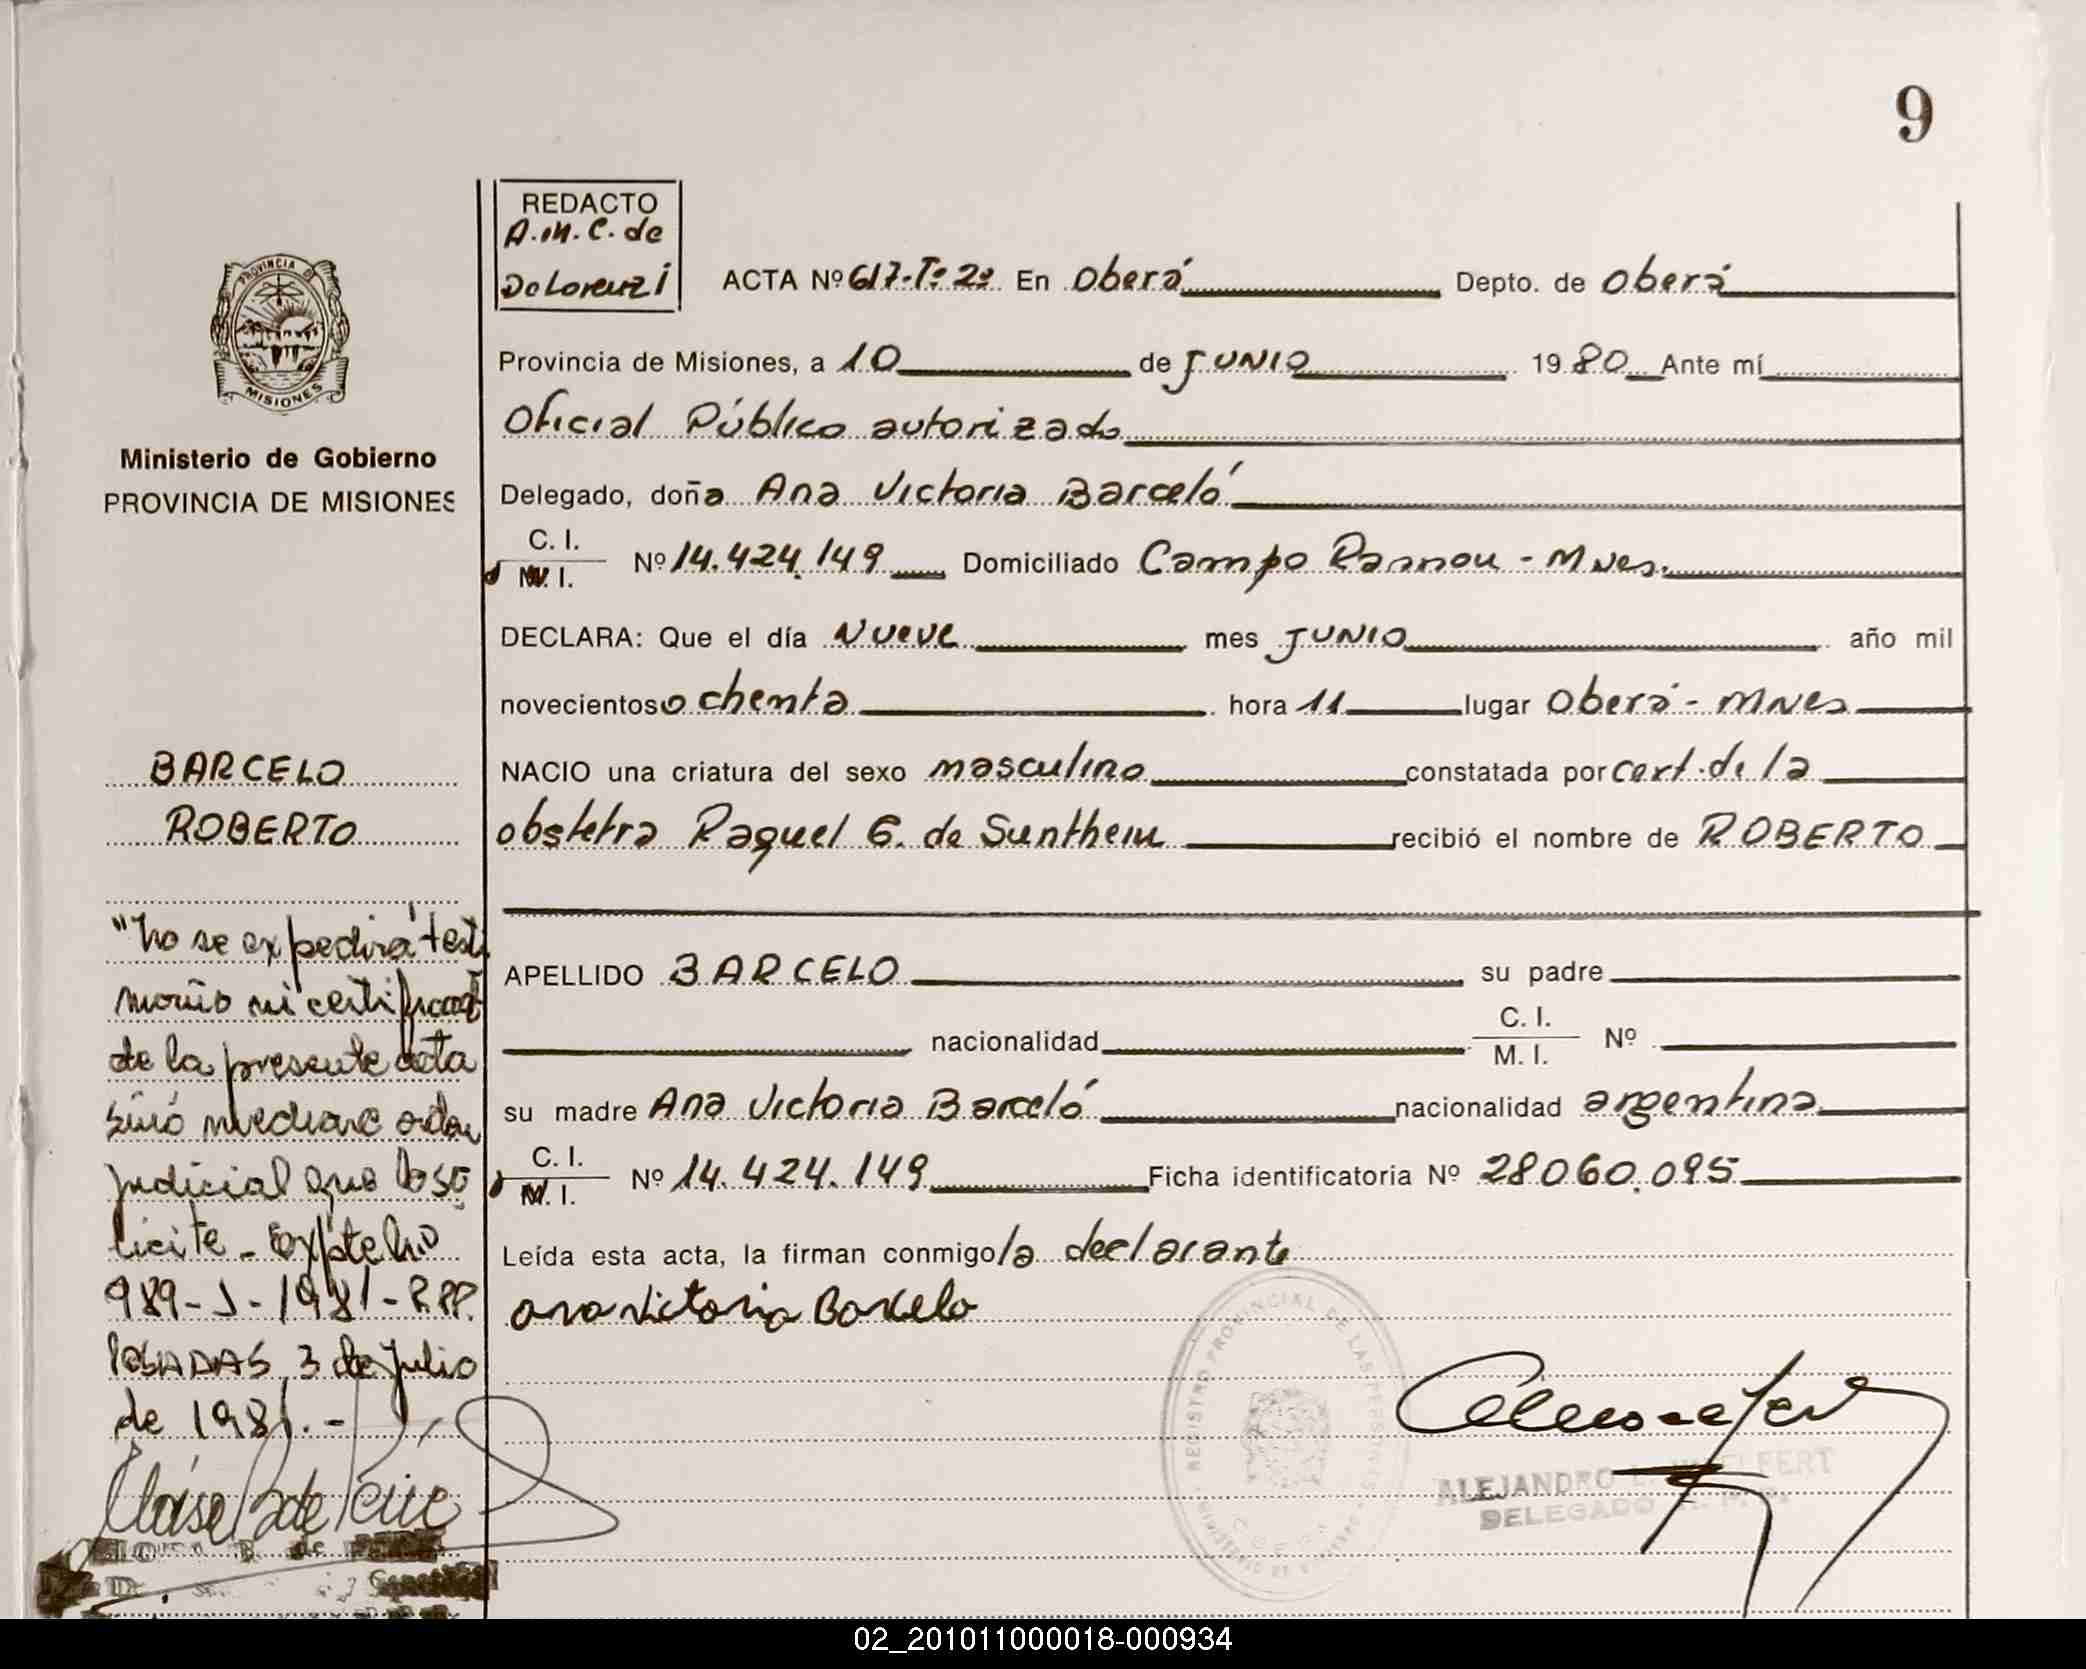 9
REDACTO
A.M.C. de
De Lorenzi
ACTA Nº 617-Tº 2º En Oberá Depto. de Oberá
Provincia de Misiones, a 10 de JUNIO 1980 Ante mí
Oficial Público autorizado
Delegado, doña Ana Victoria Barceló
C. I.
M. I.
Nº 14.424.149 Domiciliado Campo Ramon - Mnes.
DECLARA: Que el día Nueve mes JUNIO año mil
novecientos ochenta hora 11 lugar Oberá - Mnes
NACIO una criatura del sexo masculino constatada por cert. de la
obstetra Raquel G. de Sunthein recibió el nombre de ROBERTO
APELLIDO BARCELO su padre
nacionalidad C. I.
M. I. Nº
su madre Ana Victoria Barceló nacionalidad argentina
C. I.
M. I.
Nº 14.424.149 Ficha identificatoria Nº 28060.095
Leída esta acta, la firman conmigo la declarante
Ana Victoria Barcelo
REGISTRO PROVINCIAL DE LAS PERSONAS
ALEJANDRO
DELEGADO
PROVINCIA DE
MISIONES
Ministerio de Gobierno
PROVINCIA DE MISIONES
BARCELO
ROBERTO
"No se expedirá testi
monio ni certificado
de la presente acta
sinó mediare orden
judicial que lo so
licite - Expte Nº
989-J-1981-R.P.P.
POSADAS, 3 de Julio
de 1981.-
02_201011000018-000934